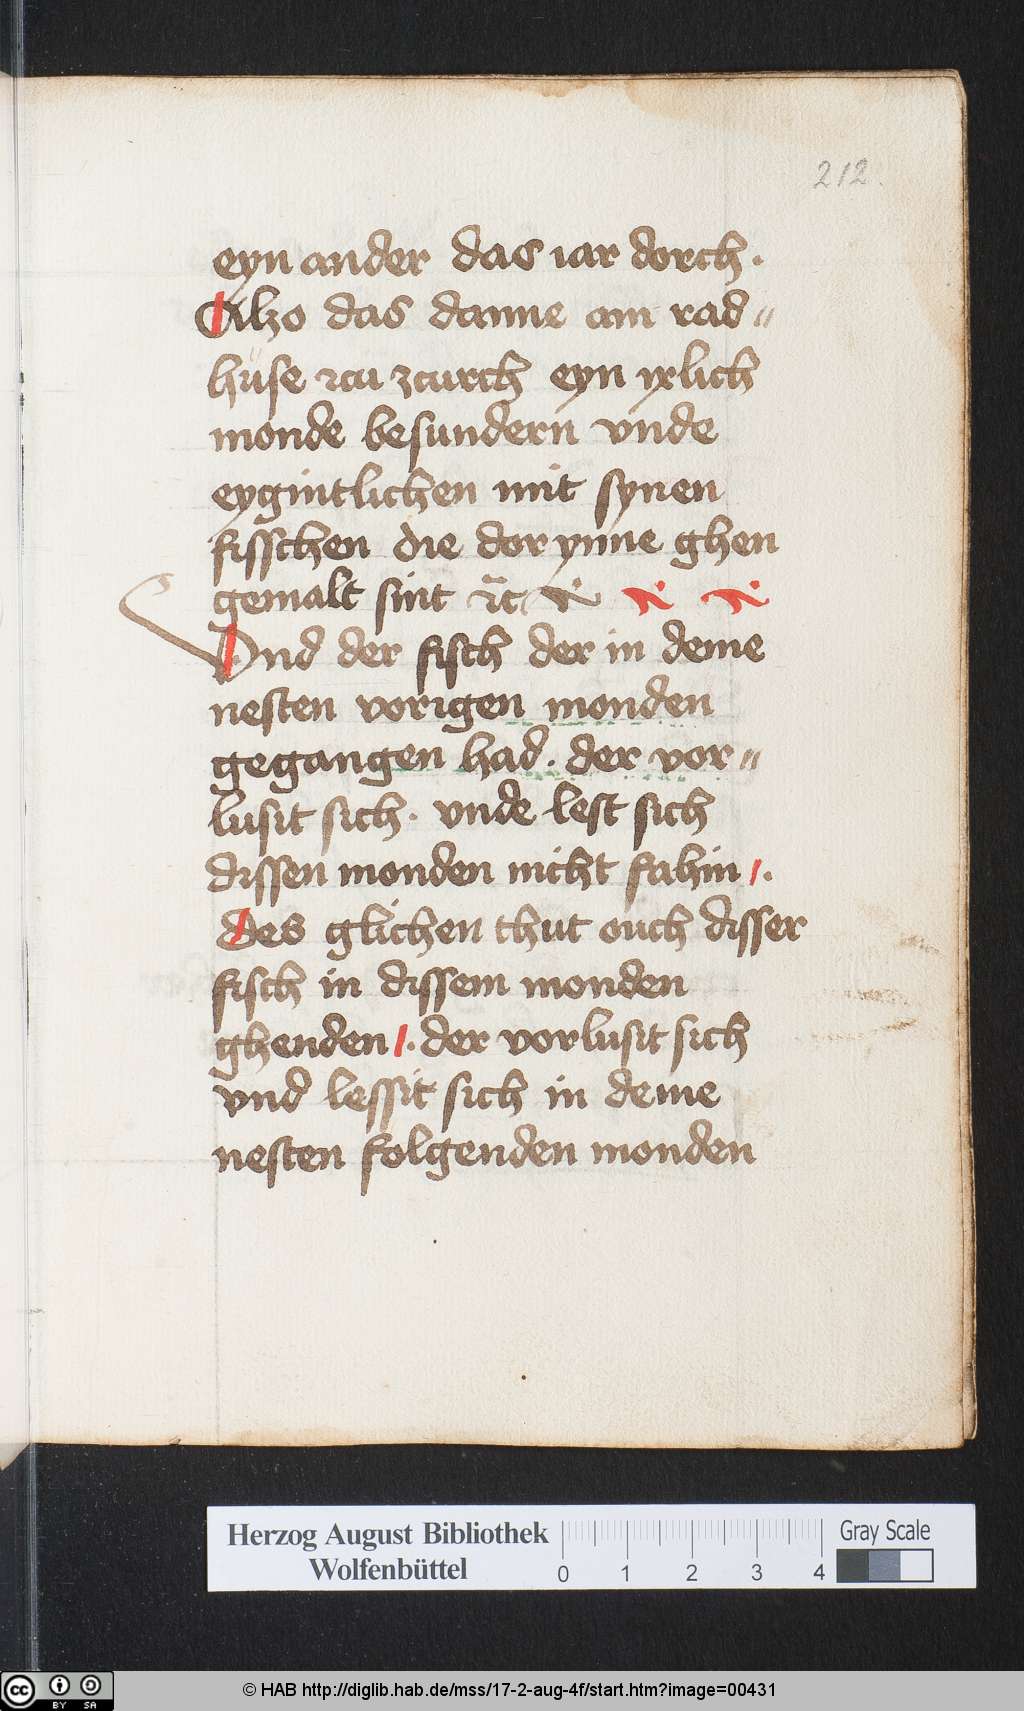 212.
eyn ander das iar dorch.
Alzo das danne am rad〃
hüse zcu zcurch eyn yxlich
monde besundern vnde
eygintlichen mit synen
fisschen die dor ynne ghen
gemalt sint ⁊c̄
Vnd der fisch der in deme
nesten vorigen monden
gegangen had. der vor〃
lusit sich. vnde lest sich
dissen monden nicht fahin /.
des glichen thut ouch disser
fisch in dissem monden
ghenden /. der vorlusit sich
vnd lessit sich in deme
nesten folgenden monden
Herzog August Bibliothek
Wolfenbüttel
0 1 2 3 4
Gray Scale
cc BY SA
© HAB http://diglib.hab.de/mss/17-2-aug-4f/start.htm?image=00431